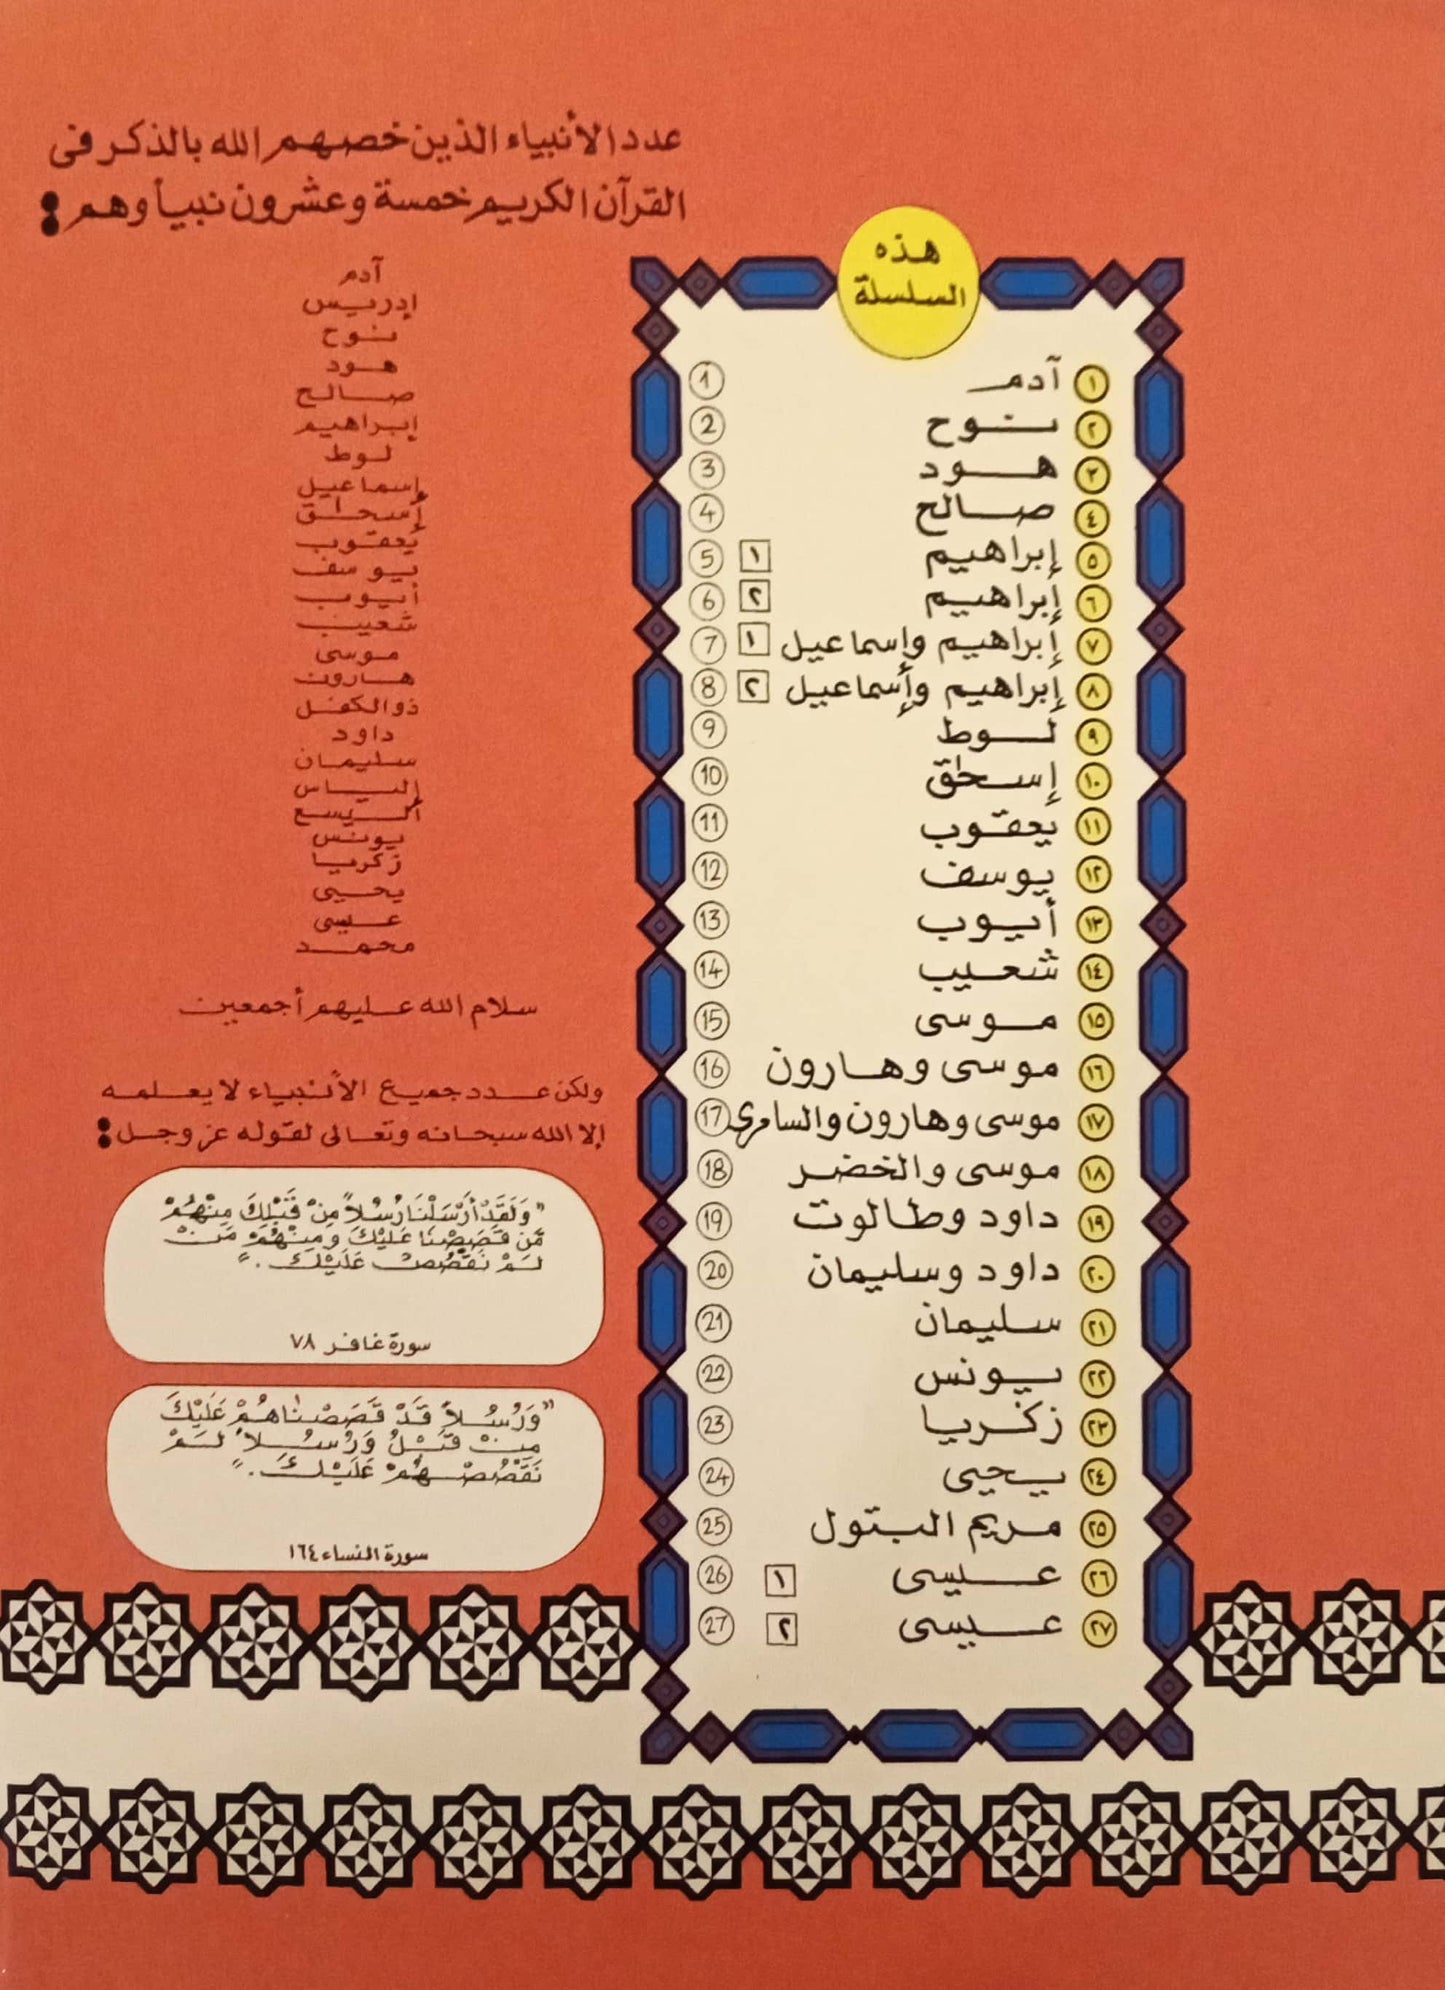 عدد الأنبياء الذين خصهم الله بالذكر فى
القرآن الكريم خمسة وعشرون نبياً وهم :
آدم
إدريس
نوح
هود
صالح
إبراهيم
لوط
إسماعيل
إسحاق
يعقوب
يوسف
أيوب
شعيب
موسى
هارون
ذو الكفل
داود
سليمان
إلياس
أليسع
يونس
زكريا
يحيى
عيسى
محمد
سلام الله عليهم أجمعين
ولكن عدد جميع الأنبياء لا يعلمه
إلا الله سبحانه وتعالى لقوله عز وجل :
"وَلَقَدْ أَرْسَلْنَا رُسُلاً مِنْ قَبْلِكَ مِنْهُمْ
مَّن قَصَصْنَا عَلَيْكَ وَمِنْهُمْ مَنْ
لَمْ نَقْصُصْ عَلَيْكَ . "
سورة غافر ٧٨
"وَرُسُلاً قَدْ قَصَصْنَاهُمْ عَلَيْكَ
مِنْ قَبْلُ وَرُسُلاً لَمْ
نَقْصُصْهُمْ عَلَيْكَ . "
سورة النساء ١٦٤
هذه
السلسلة
١ آدم 1
٢ نوح 2
٣ هود 3
٤ صالح 4
٥ إبراهيم ١ 5
٦ إبراهيم ٢ 6
٧ إبراهيم وإسماعيل ١ 7
٨ إبراهيم وإسماعيل ٢ 8
٩ لوط 9
١٠ إسحاق 10
١١ يعقوب 11
١٢ يوسف 12
١٣ أيوب 13
١٤ شعيب 14
١٥ موسى 15
١٦ موسى وهارون 16
١٧ موسى وهارون والسامرى 17
١٨ موسى والخضر 18
١٩ داود وطالوت 19
٢٠ داود وسليمان 20
٢١ سليمان 21
٢٢ يونس 22
٢٣ زكريا 23
٢٤ يحيى 24
٢٥ مريم البتول 25
٢٦ عيسى ١ 26
٢٧ عيسى ٢ 27